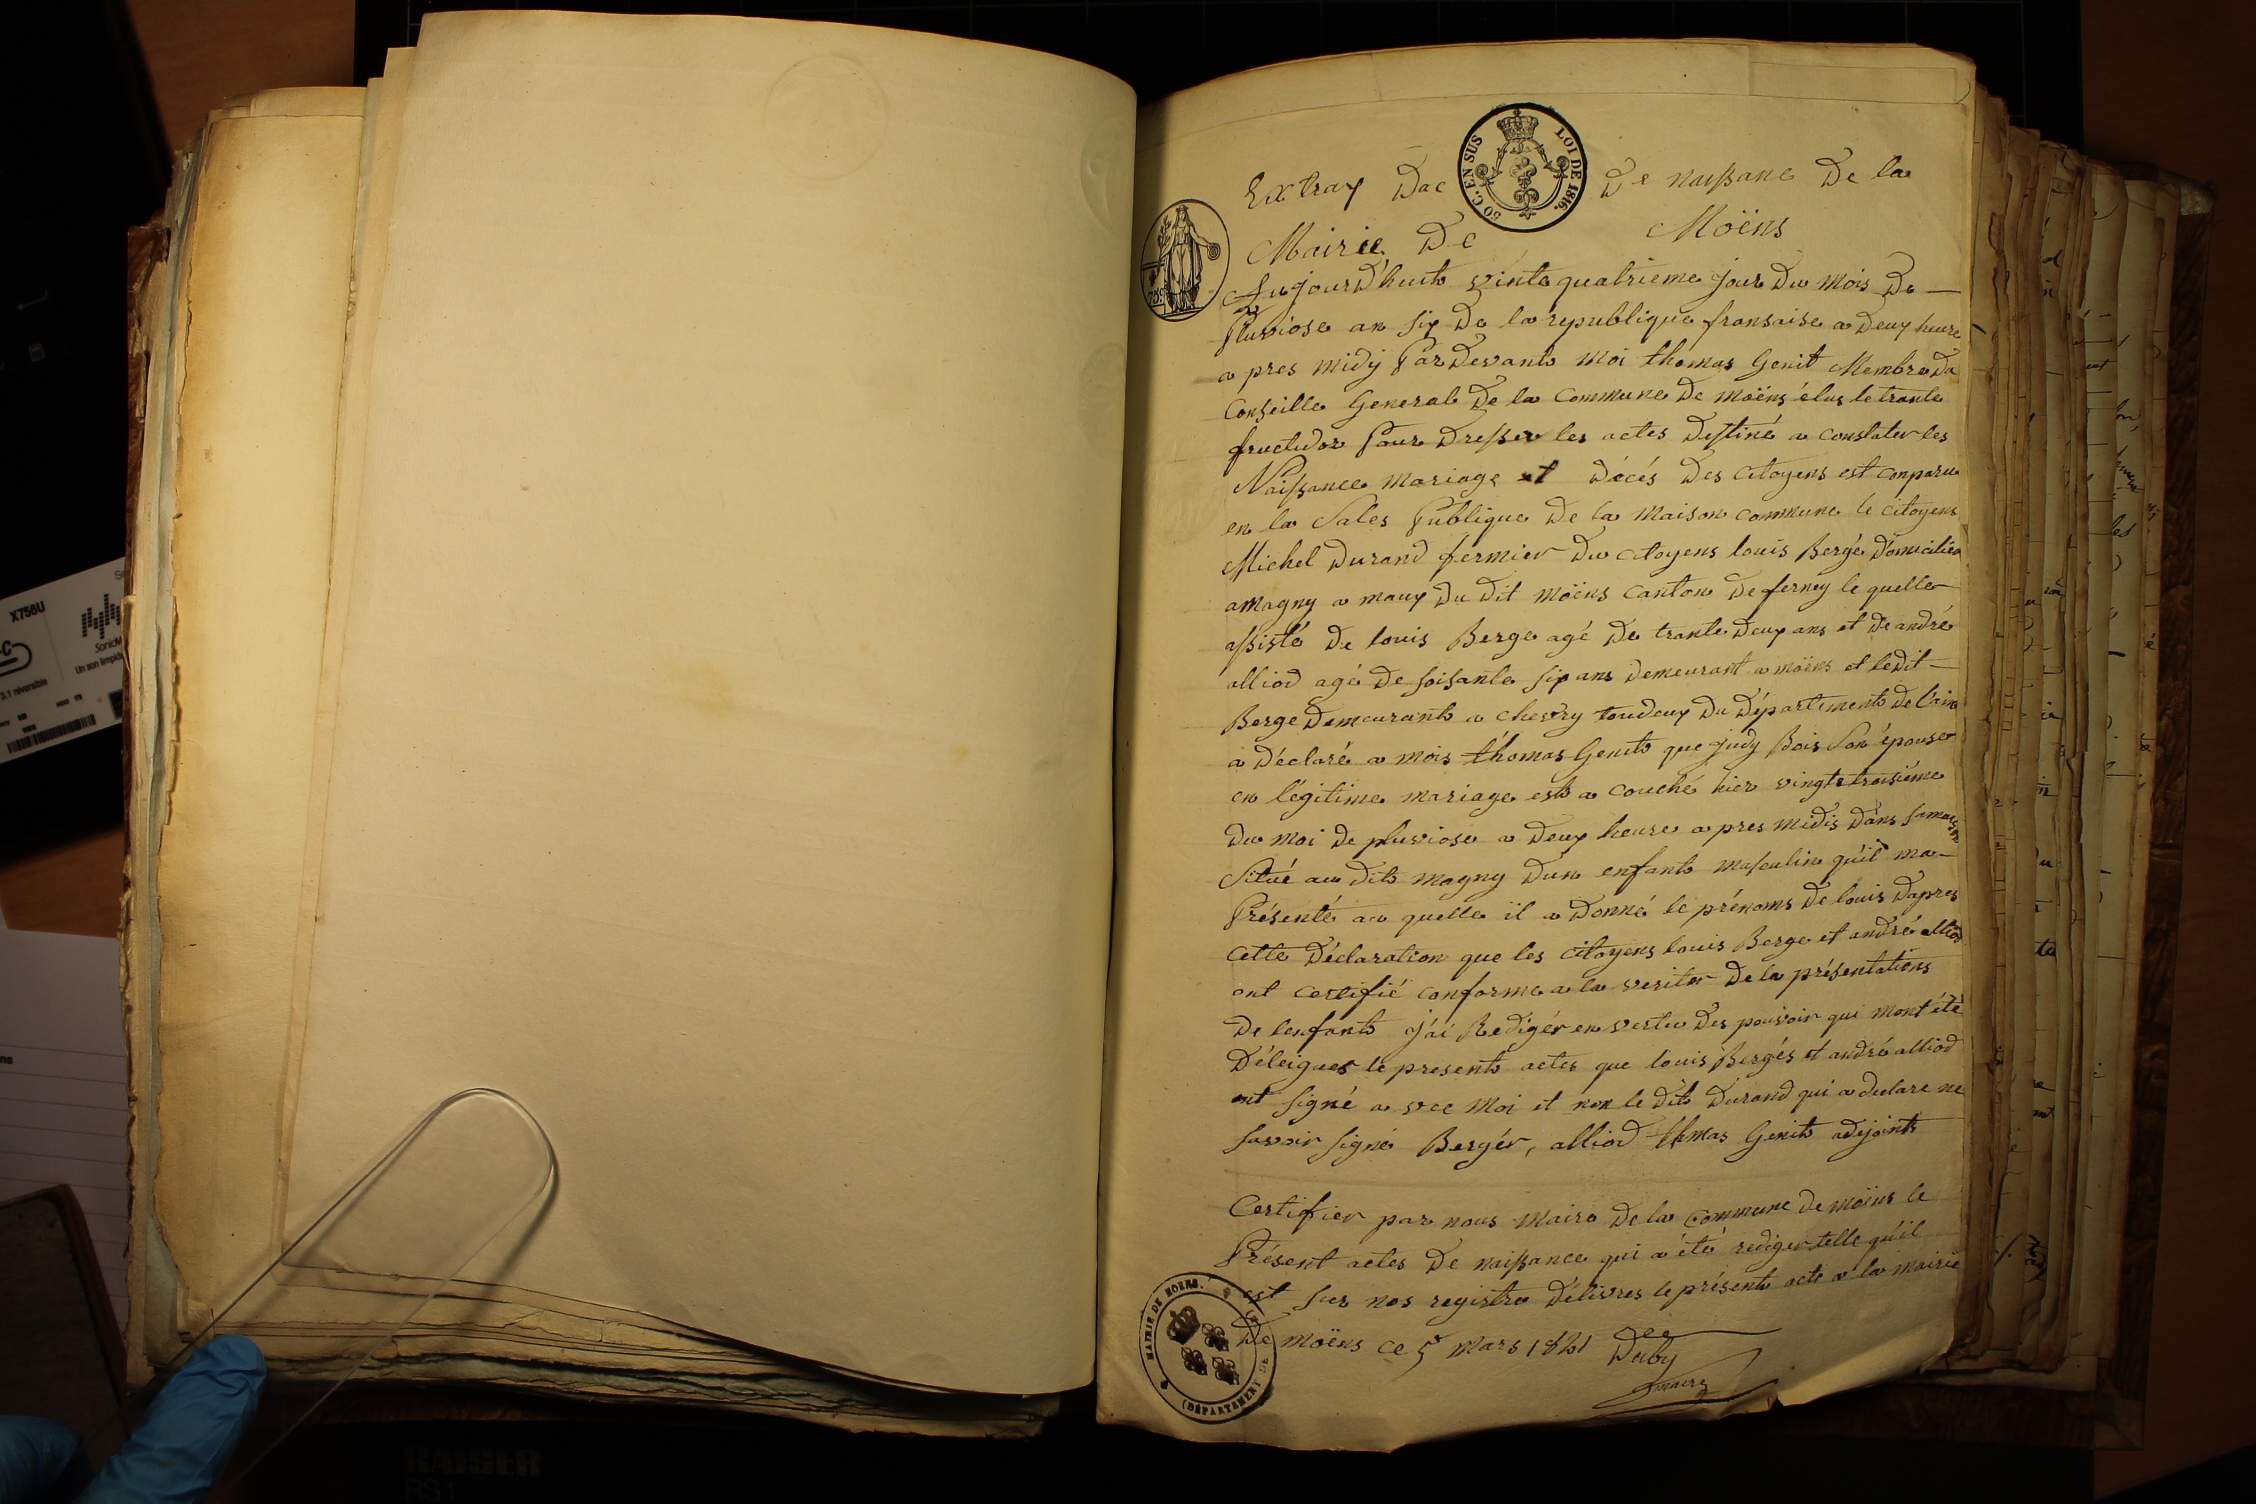 Extray Dac De naissanc De la
50 C. EN SUS LOI DE 1816.
Mairie De Moëns
75c
Aujourd'huit vinte quatrieme jour Du mois De
Pluviose an six De la republique fransaise a Deux heure
a pres midy Par Devant Moi thomas Genit Membre Du
Conseille General De la Commune De moëns élus le trante
fructidor Pour Dresser les actes Destiné a constater les
Naissance mariage et Décés Des Citoyens est conparu
en la Sales Publique De la maison commune le citoyens
Michel Durand fermier Du Citoyens louis Bergé Domicilié
amagny a maux Du Dit Moëns Canton De ferney le quelle
assisté De louis Berge agé De trante Deux ans et De andré
alliod agé De soisante six ans Demeurant a moëns et ledit
Berge Demeurant a chevry toudeux Du Département De l'ain
a Déclaré a mois thomas Genit que judy Bois Son épouse
en légitime mariage est a couché hier vingt troisiéme
Du moi De pluviose a Deux heure a pres midis Dans samaison
Situé au Dit magny D'un enfant masculin qu'il ma
Présenté au quelle il a Donné le prénoms De louis Dapres
Cette Déclaration que les citoyens louis Berge et andré alliod
ont certifié conforme a la veriter De la présentations
De lenfant J'ai Redigér en vertu Des pouvoir qui mont été
Déleiguer le present actes que louis Bergés et andré alliod
ont signé a vec Moi et non le Dit Durand qui a declare ne
savoir signé Bergér, alliod thmas Genit adejoint
Certifier par nous Maire De la Commune De moëns le
Présent actes De naissance qui a été rediger telle qu'il
est sur nos registre Délivres le présent acte a la mairie
De moëns ce 5 mars 1821 Deby
maire
MAIRIE DE MOENS. (DÉPARTEMENT DE
X756U
3.1 réversible
KAISER
RS1